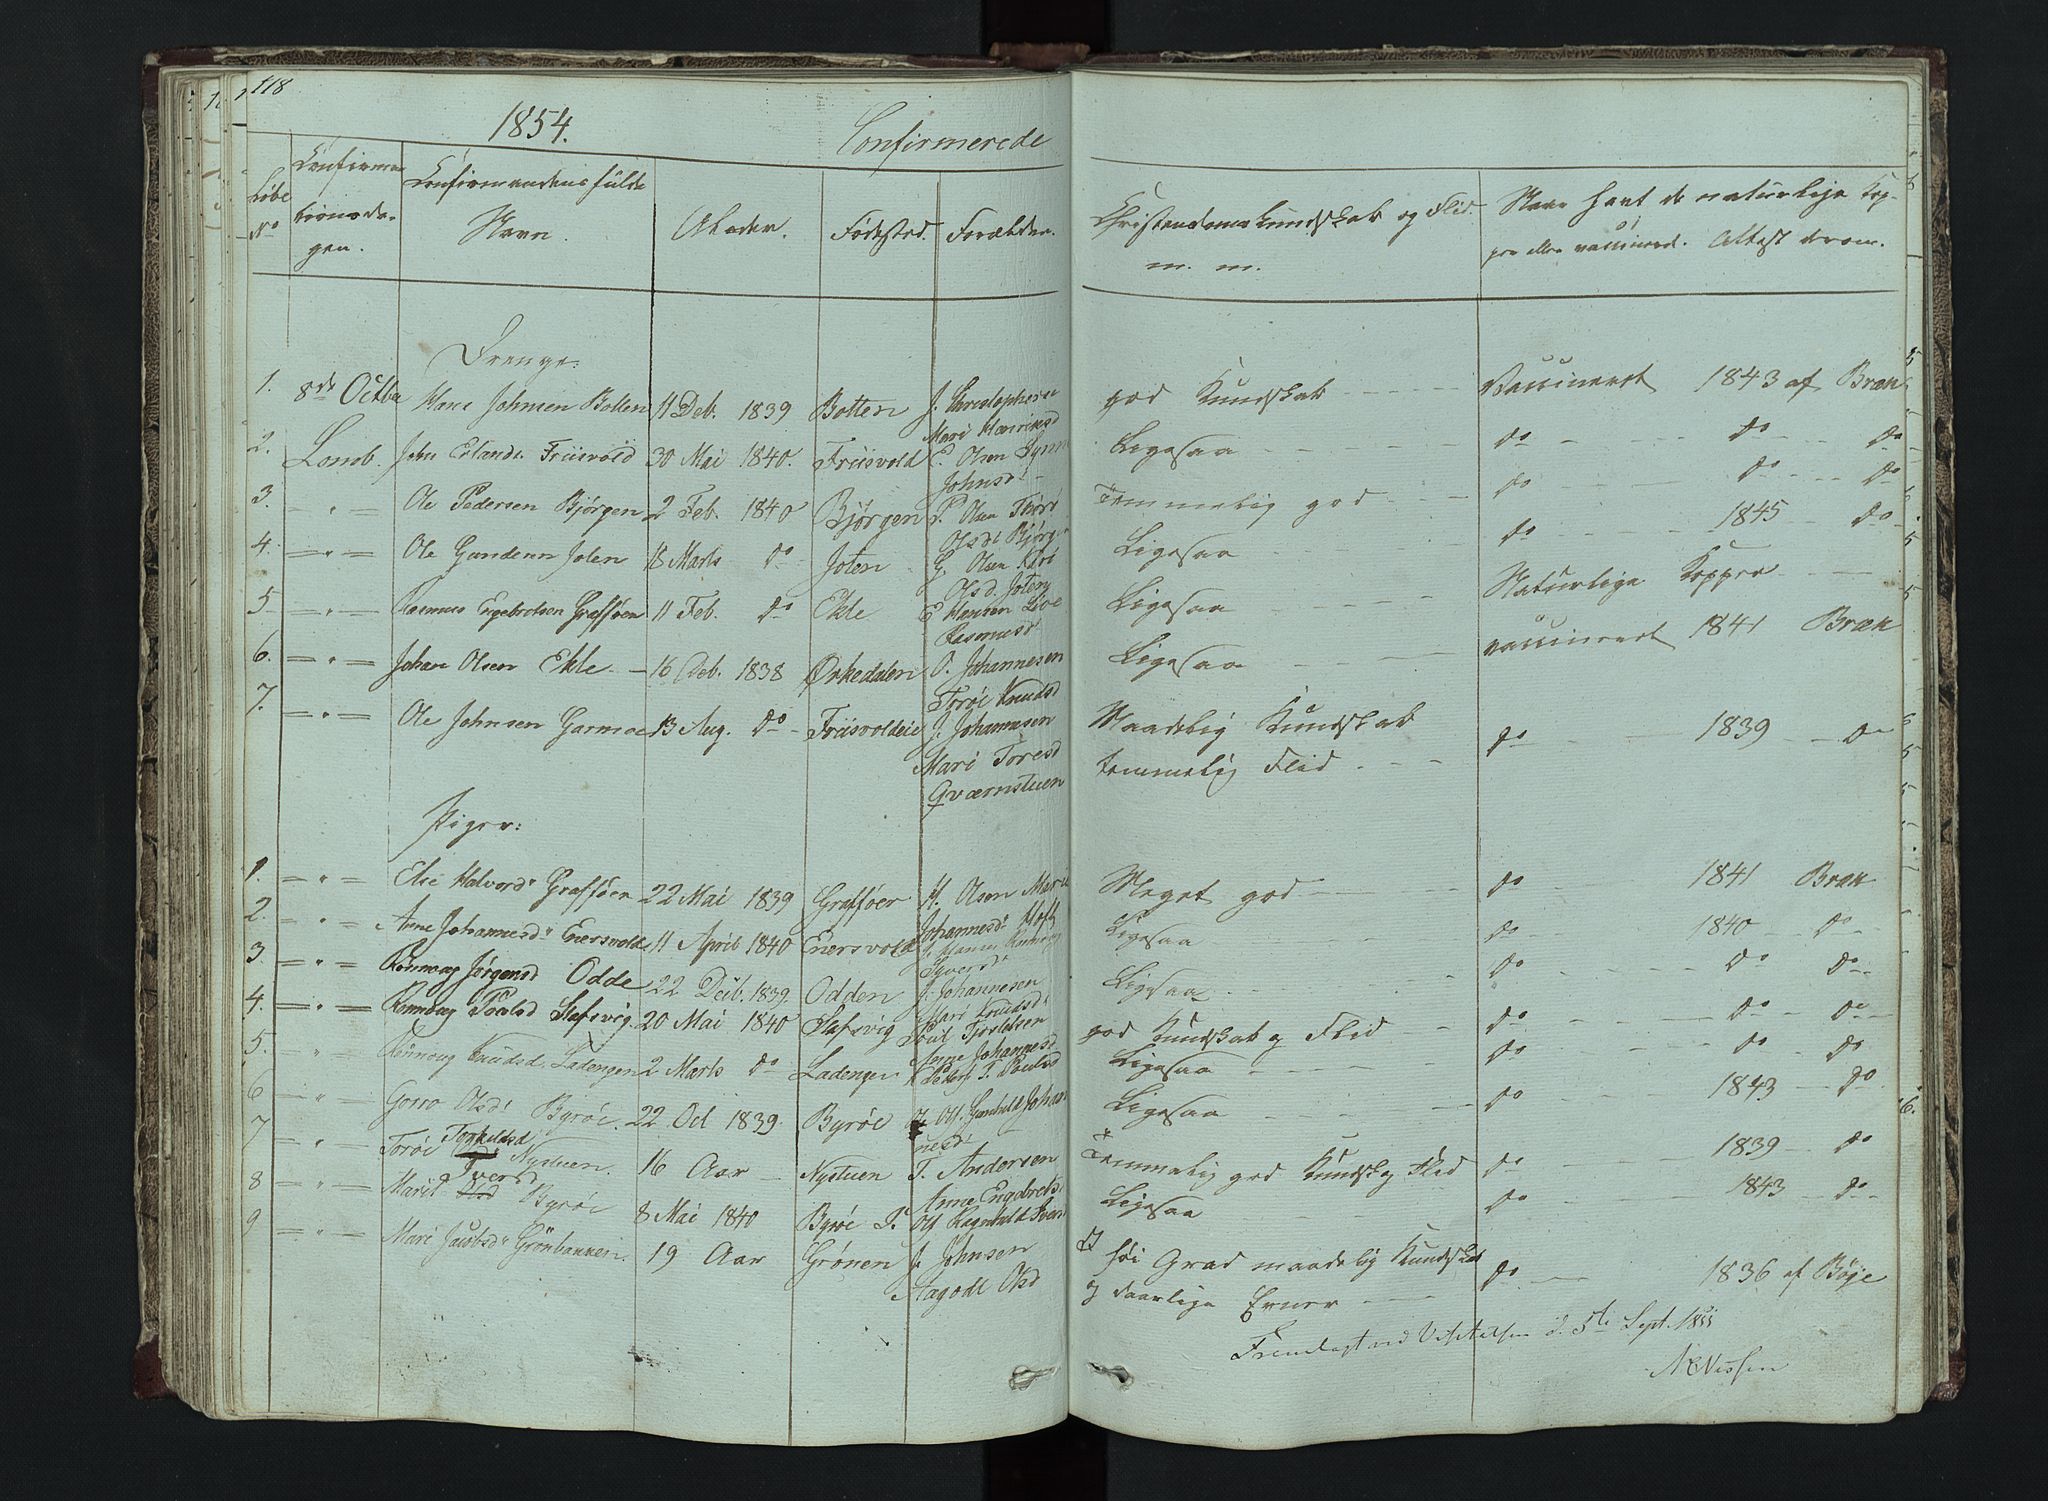 118
1854. Confirmerede
Løbe No
Confirmationsdagen.
Confirmandens fulde Navn.
Alder.
Fødested.
Forældre.
Christendoms Kundskab og Flid. m. m.
Naar havt de naturlige Kopper eller vaccineret. Attest derom.
Drenge:
1. 8de Octbr Hans Johnsen Botten 11 Deb. 1839 Botten J. Christophersen Mari Henriksd god Kundskab - - - Vaccineret 1843 af Bræk
2. Lomb. John Erlands. Friisvold 30 Mai 1840. Friisvold E. Olsen Synn Johnsd Ligesaa - - - - do - - do - - do
3. - " - Ole Pedersen Bjørgen 2 Feb. 1840 Bjørgen P. Olsen Thore Olsdt Bjørge Temmelig god - - - do - - do - - do
4. = " = Ole Gundersen Joten 18 Marts do Joten G. Olsen Kari Olsd. Joten Ligesaa - - - do - - 1845 - - do
5. - " - Rasmus Engebretsen Grafføen 11 Feb. do Ekle E Hansen Live Rasmusd Ligesaa - - - - Naturlige Kopper - -
6. = " = Johan Olsen Ekle - 16 Deb. 1838 Ørkedalen O. Johannesen Toröe Knudsd Ligesaa - - - - vaccineret 1841 Bræk
7. = " = Ole Johnsen Garmoe 13 Aug. do Friisvoldeie J. Johannesen Mari Toresd Qværnstuen Maadelig Kundskab temmelig Flid. - - - do - - 1839 - - do
Piger:
1. = " = Elie Halvord" Grafføen 22 Mai 1839 Grafføen H. Olsen Mari Johannesd" Hoft Meget god - - - do - - 1841 Bræk
2. = " = Anne Johannesd" Enersvolde 11 April 1840 Enersvold J. Hansen Syversd" Ligesaa - - - do - - 1840 - do
3. = " = Rönnoug Jørgensd Odde 22 Deib. 1839. Odden J. Johannesen Mari Knudsd Ligesaa - - - do - - do - do
4. = " = Rönnoug Poulsd Slafsvig. 20 Mai 1840 Slafsvig Poul Tjostelsen Anne Johannesd god Kundskab og Flid - - do - - do - do
5. = " = Rönnoug Knudsd. Ladengen 2 Marts do Ladengen K Peders T. Poulsd Ligesaa - - - do - - do - do
6 = " = Goro Olsd Byröe. 22 Oct 1839. Byröe O. Ols. Gunhild Johannesd Ligesaa - - - do - - 1843 - do
7 - " - Toröe Torkildsd Nystuen. 16 Aar - Nystuen T. Andersen Anne Engebrets. Temmelig god Kundsk og Flid do - - 1839 - do
8 = " = Marit Iversd Byröe 8 Mai 1840 Byröe I. Ols Ragnhild Iver Ligesaa - - - do - - 1843 - do
9 - " = Mari Jacobsd" Grönbakken. 19 Aar Grönen J. Johnsen Aagodt Olsd I høi Grad maadelig Kundskab og daarlige Evner - - do - - 1836 af Bøje
Fremlagt ved Visitatsen d. 5te Sept. 1855
N Nissen